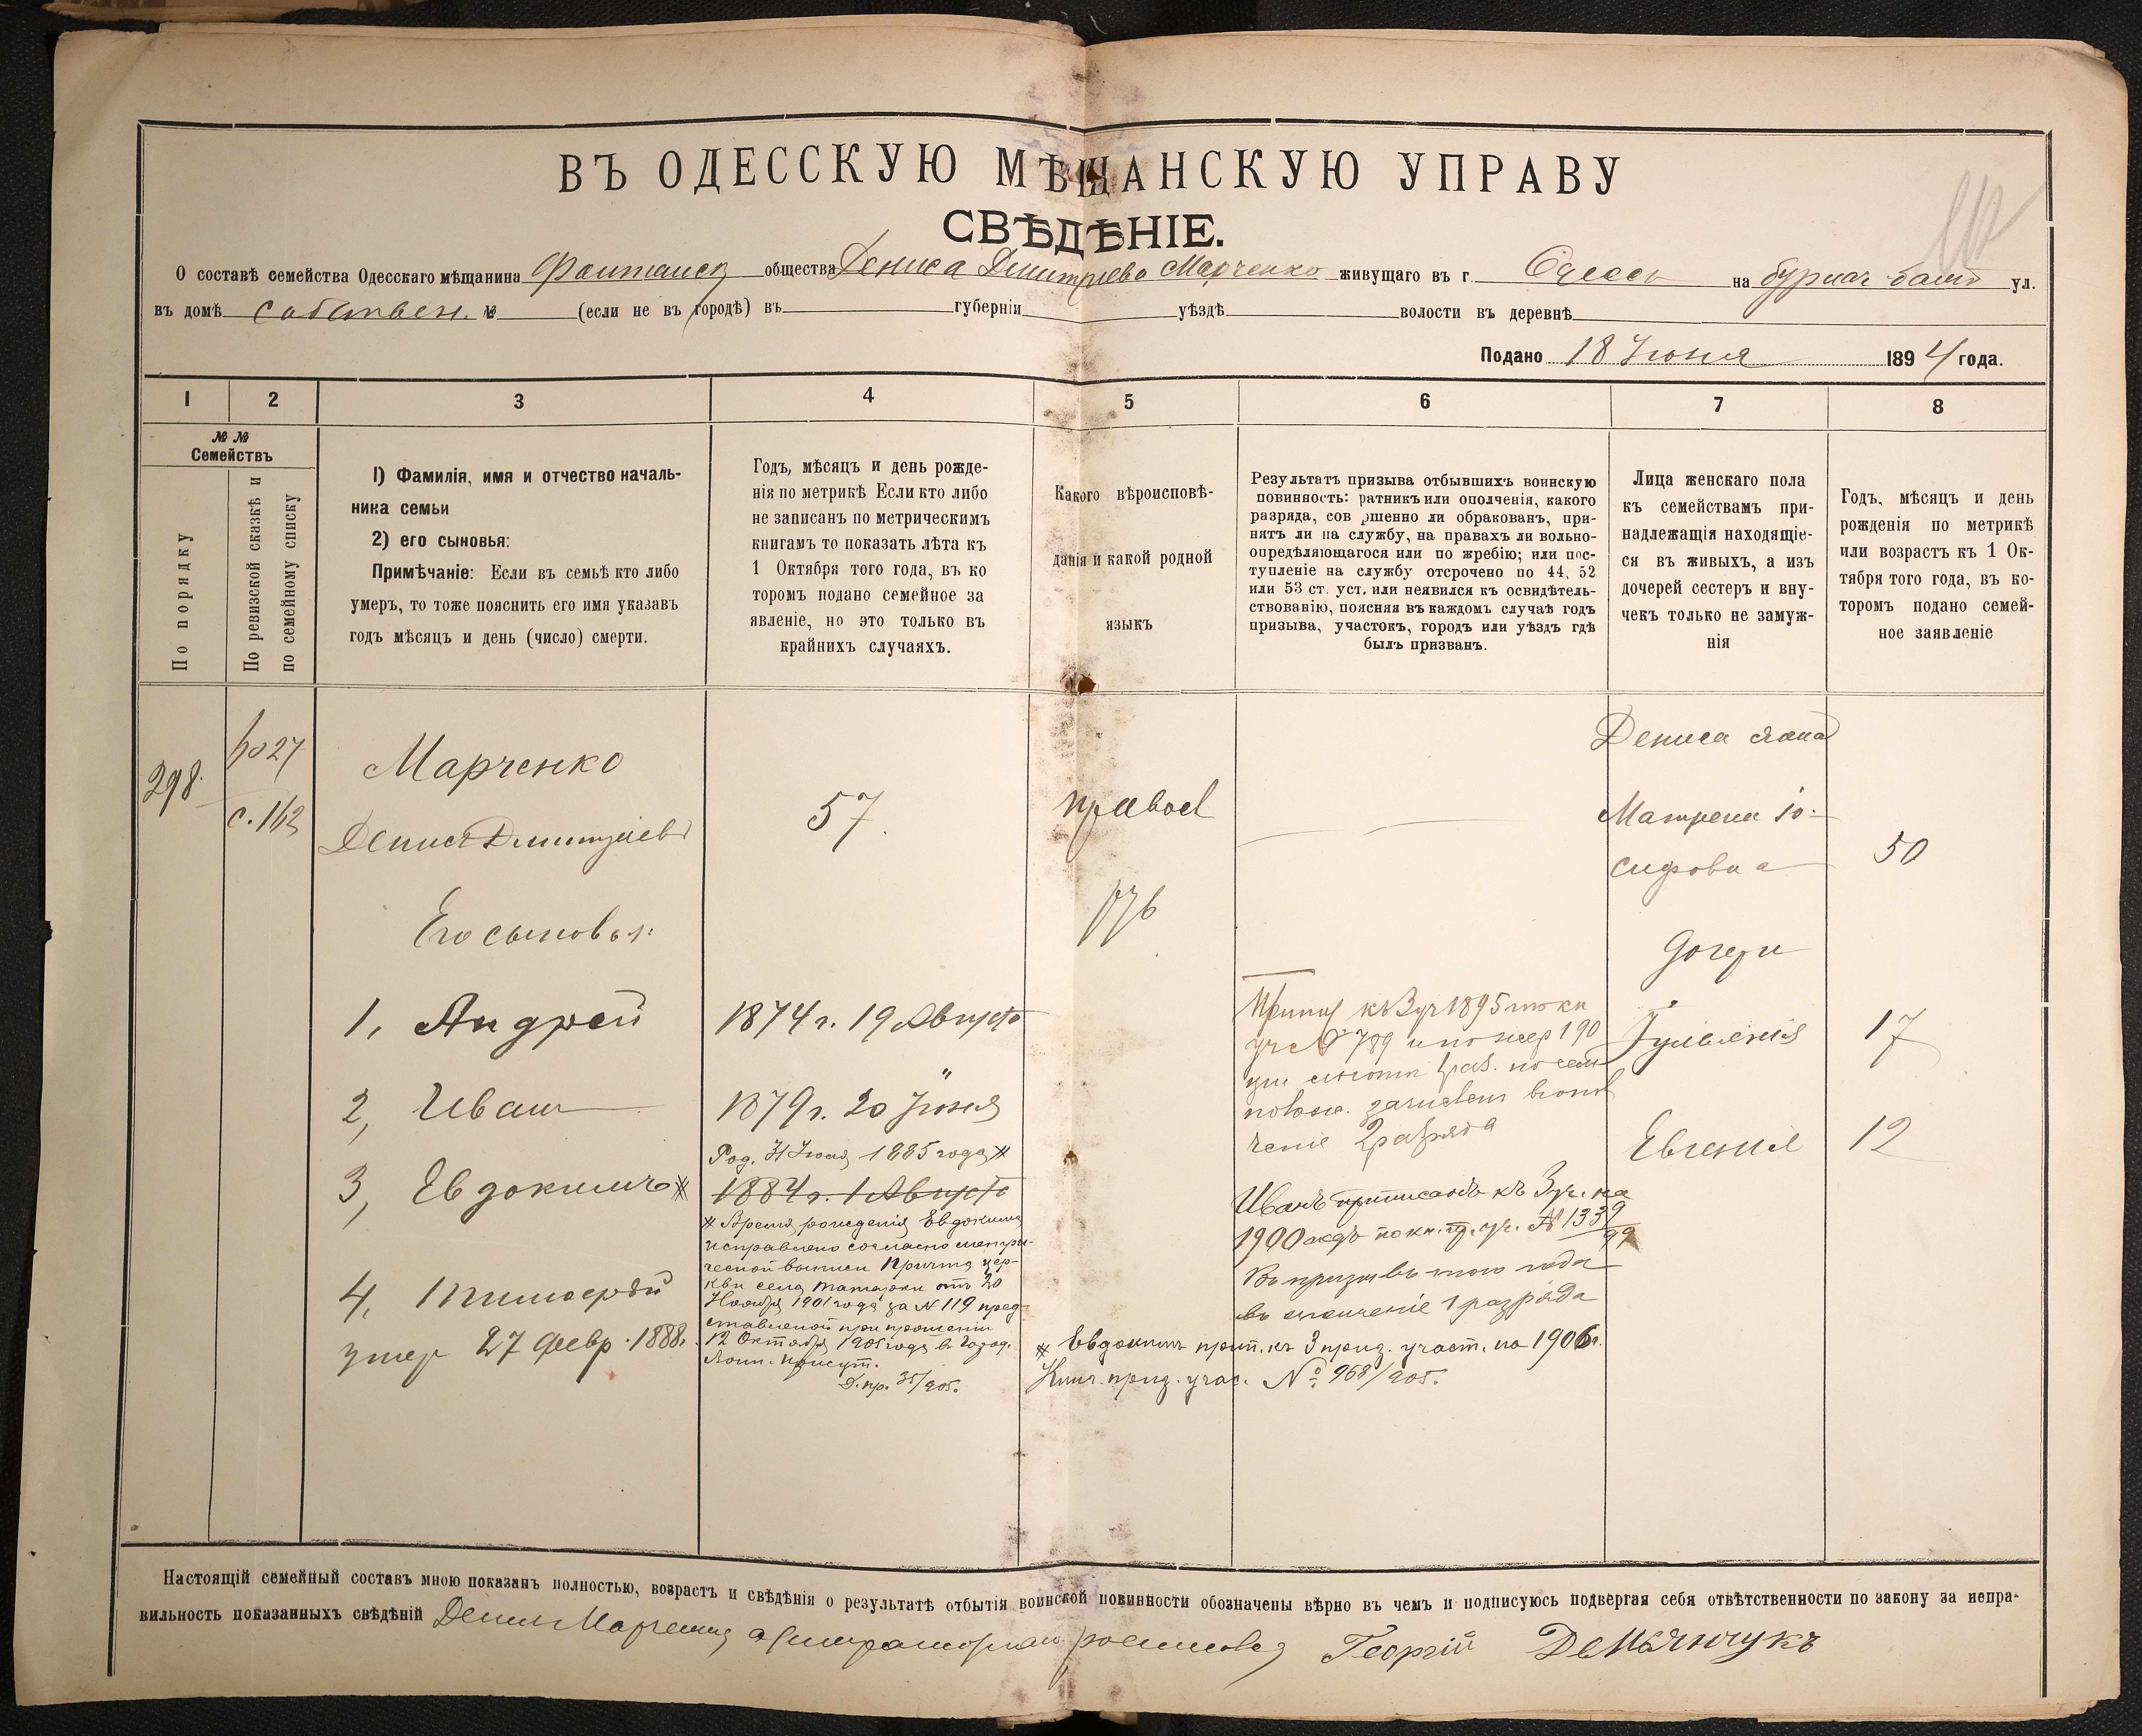 ВЪ ОДЕССКУЮ МѢЩАНСКУЮ УПРАВУ
СВѢДѢНІЕ.
О составѣ семейства Одесскаго мѣщанина Фонтанск общества Дениса Дмитріева Марченко живущаго въ г. Одессѣ на ул.
въ домѣ собствен. № (если не въ городѣ) въ губерніи уѣздѣ волости въ деревнѣ
Подано 18 Іюня 1894 года.
1 2 3 4 5 6 7 8
№ № Семействъ
По порядку
По ревизской сказкѣ и
по семейному списку
1) Фамилія, имя и отчество началь-
ника семьи
2) его сыновья:
Примѣчаніе: Если въ семьѣ кто либо
умеръ, то тоже пояснить его имя указавъ
годъ мѣсяцъ и день (число) смерти.
Годъ, мѣсяцъ и день рожде-
нія по метрикѣ Если кто либо
не записанъ по метрическимъ
книгамъ то показать лѣта къ
1 Октября того года, въ ко
торомъ подано семейное за
явленіе, но это только въ
крайнихъ случаяхъ.
Какого вѣроисповѣ-
данія и какой родной
языкъ
Результатъ призыва отбывшихъ воинскую
повинность: ратникъ или ополченія, какого
разряда, сов ршенно ли обракованъ, при-
нятъ ли на службу, на правахъ ли вольно-
опредѣляющагося или по жребію; или пос-
тупленіе на службу отсрочено по 44, 52
или 53 ст. уст. или неявился къ освидѣтель-
ствованію, поясняя въ каждомъ случаѣ годъ
призыва, участокъ, городъ или уѣздъ гдѣ
былъ призванъ.
Лица женскаго пола
къ семействамъ при-
надлежащія находящіе-
ся въ живыхъ, а изъ
дочерей сестеръ и вну-
чекъ только не замуж-
нія
Годъ, мѣсяцъ и день
рожденія по метрикѣ
или возрастъ къ 1 Ок-
тября того года, въ ко-
торомъ подано семей-
ное заявленіе
298.
с. 162
Марченко
Денисъ Дмитріевъ
57.
правосл
Дениса жена
Матрена Іо-
сифовна
50
Его сыновья:
дочери
1, Андрей
1874 г. 19 Августа
17
2, Иванъ
1879 г. 20 Іюня
Евгенія
12
3, Евдокимъ *
Род. 31 Іюля 1885 года *
1884 г. 1 Августа
* Время рожденія Евдокима
исправлено согласно метри-
ческой выписи Причта цер-
кви села Татарки отъ 20
Ноября 1901 года за № 119 пред-
ставленой при прошеніи
12 Октября 1905 года в Город.
Воин. Присут.
Д. пр. 35/905.
4, Тимофѣй
умер 27 февр. 1888г.
къ 3 уч 1895
уч № 789
2 разряда
Иванъ приписанъ къ 3 уч. на
1900 годъ по кн. пр. уч. № 1339/99
Въ призывъ того года
въ ополченіе 1 разряда
* Евдокимъ прип. къ 3 приз. участ. на 1906г.
Книг. приз. учас. № 968/905.
Настоящій семейный составъ мною показанъ полностью, возрастъ и свѣдѣнія о результатѣ отбытія воинской повинности обозначены вѣрно въ чемъ и подписуюсь подвергая себя отвѣтственности по закону за непра-
вильность показанныхъ свѣдѣній Денисъ Марченко Георгій Демянчукъ